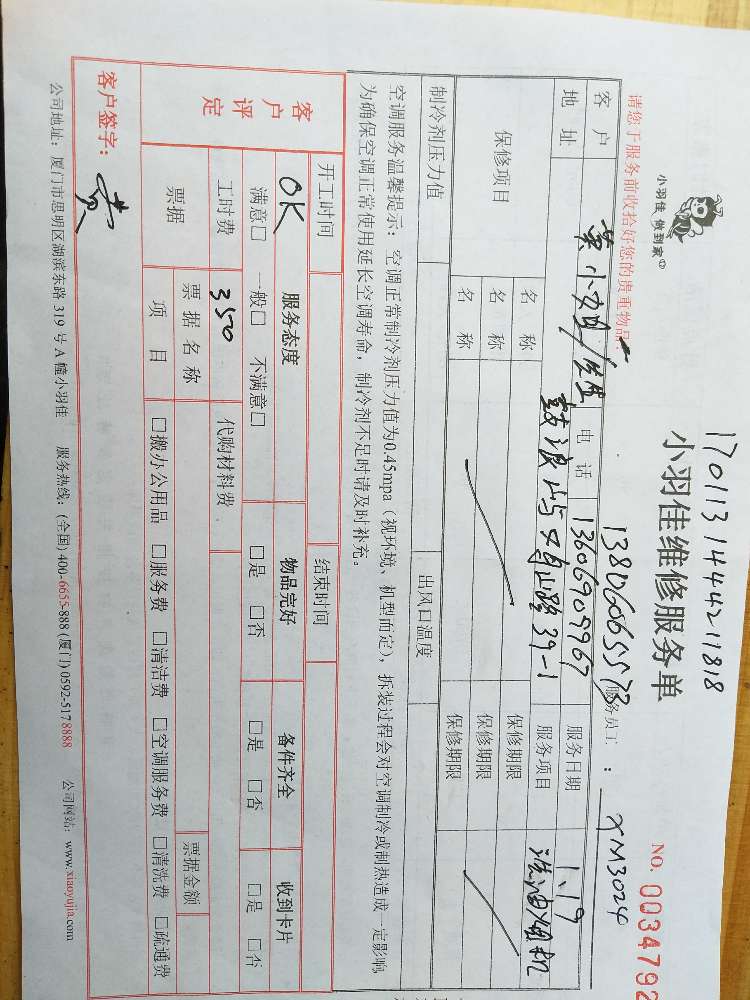 17011314442 11818
小羽佳 做到家
小羽佳维修服务单
NO. 0034792
请您于服务前收拾好您的贵重物品
13806065573
服务员工： XM3024
客户
电话 13606909967
服务日期 1.19
地址 鼓浪屿 39-1
服务项目 洗油烟机
保修项目
名称 保修期限
名称 保修期限
名称 保修期限
制冷剂压力值 出风口温度
空调服务温馨提示：空调正常制冷剂压力值为0.45mpa（视环境、机型而定），拆装过程会对空调制冷或制热造成一定影响
为确保空调正常使用延长空调寿命，制冷剂不足时请及时补充。
开工时间 结束时间
客户评定
OK
服务态度 物品完好 备件齐全 收到卡片
满意□ 一般□ 不满意□ □是 □否 □是 □否 □是 □否
工时费 350 代购材料费
票据 票据名称 票据金额
项目 □搬办公用品 □服务费 □清洁费 □空调服务费 □清洗费 □疏通费
客户签字： 黄
公司地址：厦门市思明区湖滨东路 319 号 A 幢小羽佳 服务热线：(全国) 400-6655-888 (厦门) 0592-517 8888 公司网站：www.xiaoyujia.com